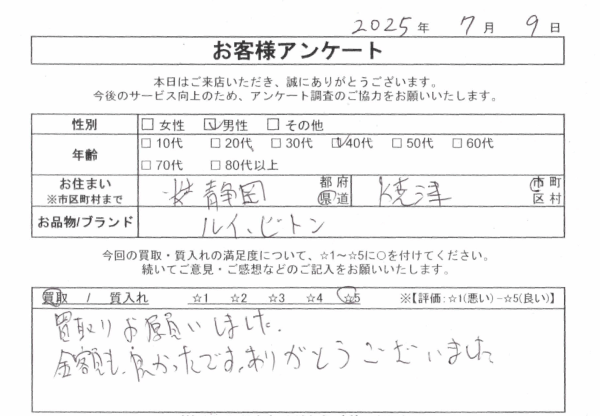 2025年 7月 9日
お客様アンケート
本日はご来店いただき、誠にありがとうございます。
今後のサービス向上のため、アンケート調査のご協力をお願いいたします。
性別 □ 女性 ☑ 男性 □ その他
年齢 □ 10代 □ 20代 □ 30代 ☑ 40代 □ 50代 □ 60代
□ 70代 □ 80代以上
お住まい ※市区町村まで 静岡 都府県道 焼津 市町区村
お品物/ブランド ルイ、ビトン
今回の買取・質入れの満足度について、☆1～☆5に○を付けてください。
続いてご意見・ご感想などのご記入をお願いいたします。
買取 / 質入れ ☆1 ☆2 ☆3 ☆4 ☆5 ※【評価:☆1(悪い)-☆5(良い)】
買取りお願いしました.
金額も、良かったです、ありがとうございました